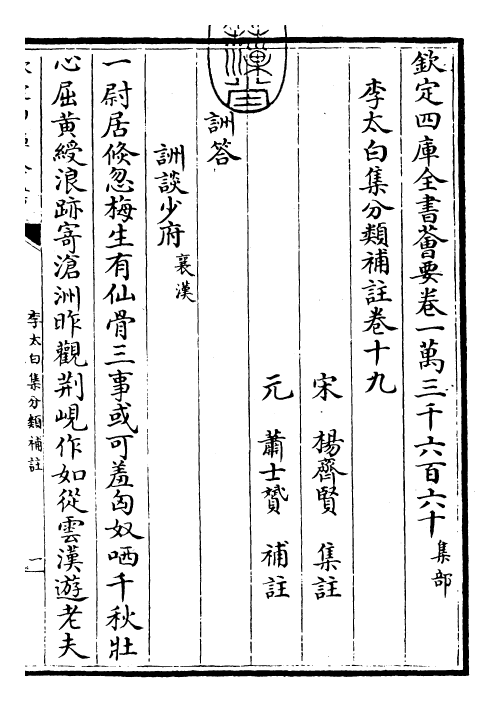 欽定四庫全書薈要卷一萬三千六百六十 集部
李太白集分類補註卷十九
宋 楊齊賢 集註
元 蕭士贇 補註
詶答
詶談少府 襄漢
一尉居倐忽梅生有仙骨三事或可羞匈奴哂千秋壯
心屈黃綬浪跡寄滄洲昨觀荆峴作如從雲漢遊老夫
李太白集分類補註
一